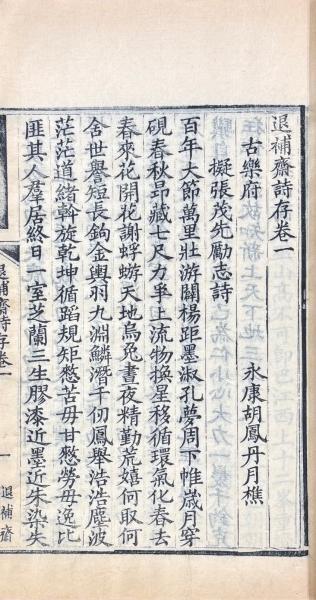 退補齋詩存卷一
永康胡鳳丹月樵
古樂府
擬張茂先勵志詩
百年大節萬里壯游闢楊距墨淑孔夢周下帷歲月穿
硯春秋昂藏七尺力爭上流物換星移循環氣化春去
春來花開花謝蜉蝣天地烏兔晝夜精勤荒嬉何取何
舍世譽短長鉤金輿羽九淵鱗潛千仞鳳舉浩浩塵波
茫茫道緒斡旋乾坤循蹈規矩憗苦毋甘憗勞毋逸比
匪其人羣居終日一室芝蘭三生膠漆近墨近朱染失
退補齋詩存卷一
一
退補齋